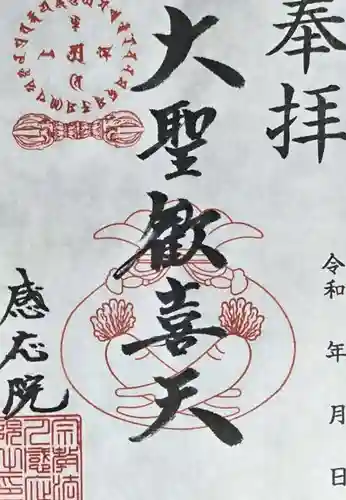 奉拝
令和 年 月 日
大聖歓喜天
感応院